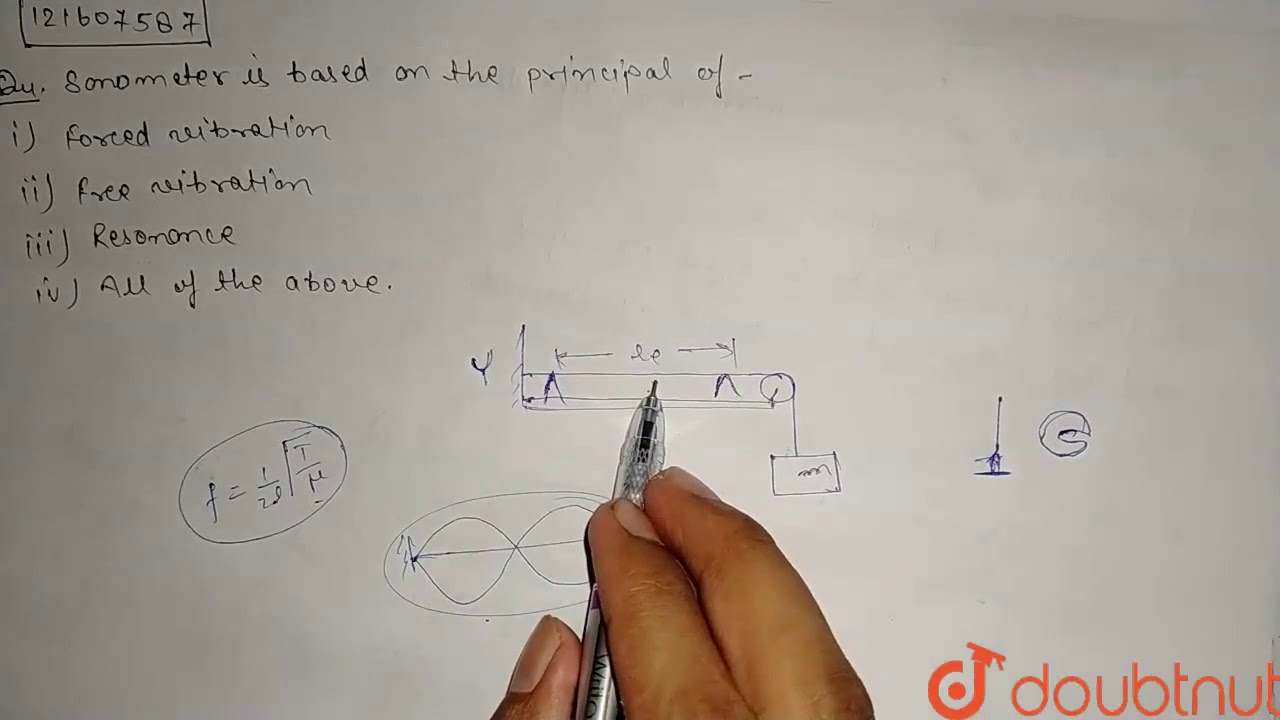 121607587
Qu. Sonometer is based on the principal of -
i) Forced vibration
ii) Free vibration
iii) Resonance
iv) All of the above.
le
m
f = 1/2l √T/μ
doubtnut